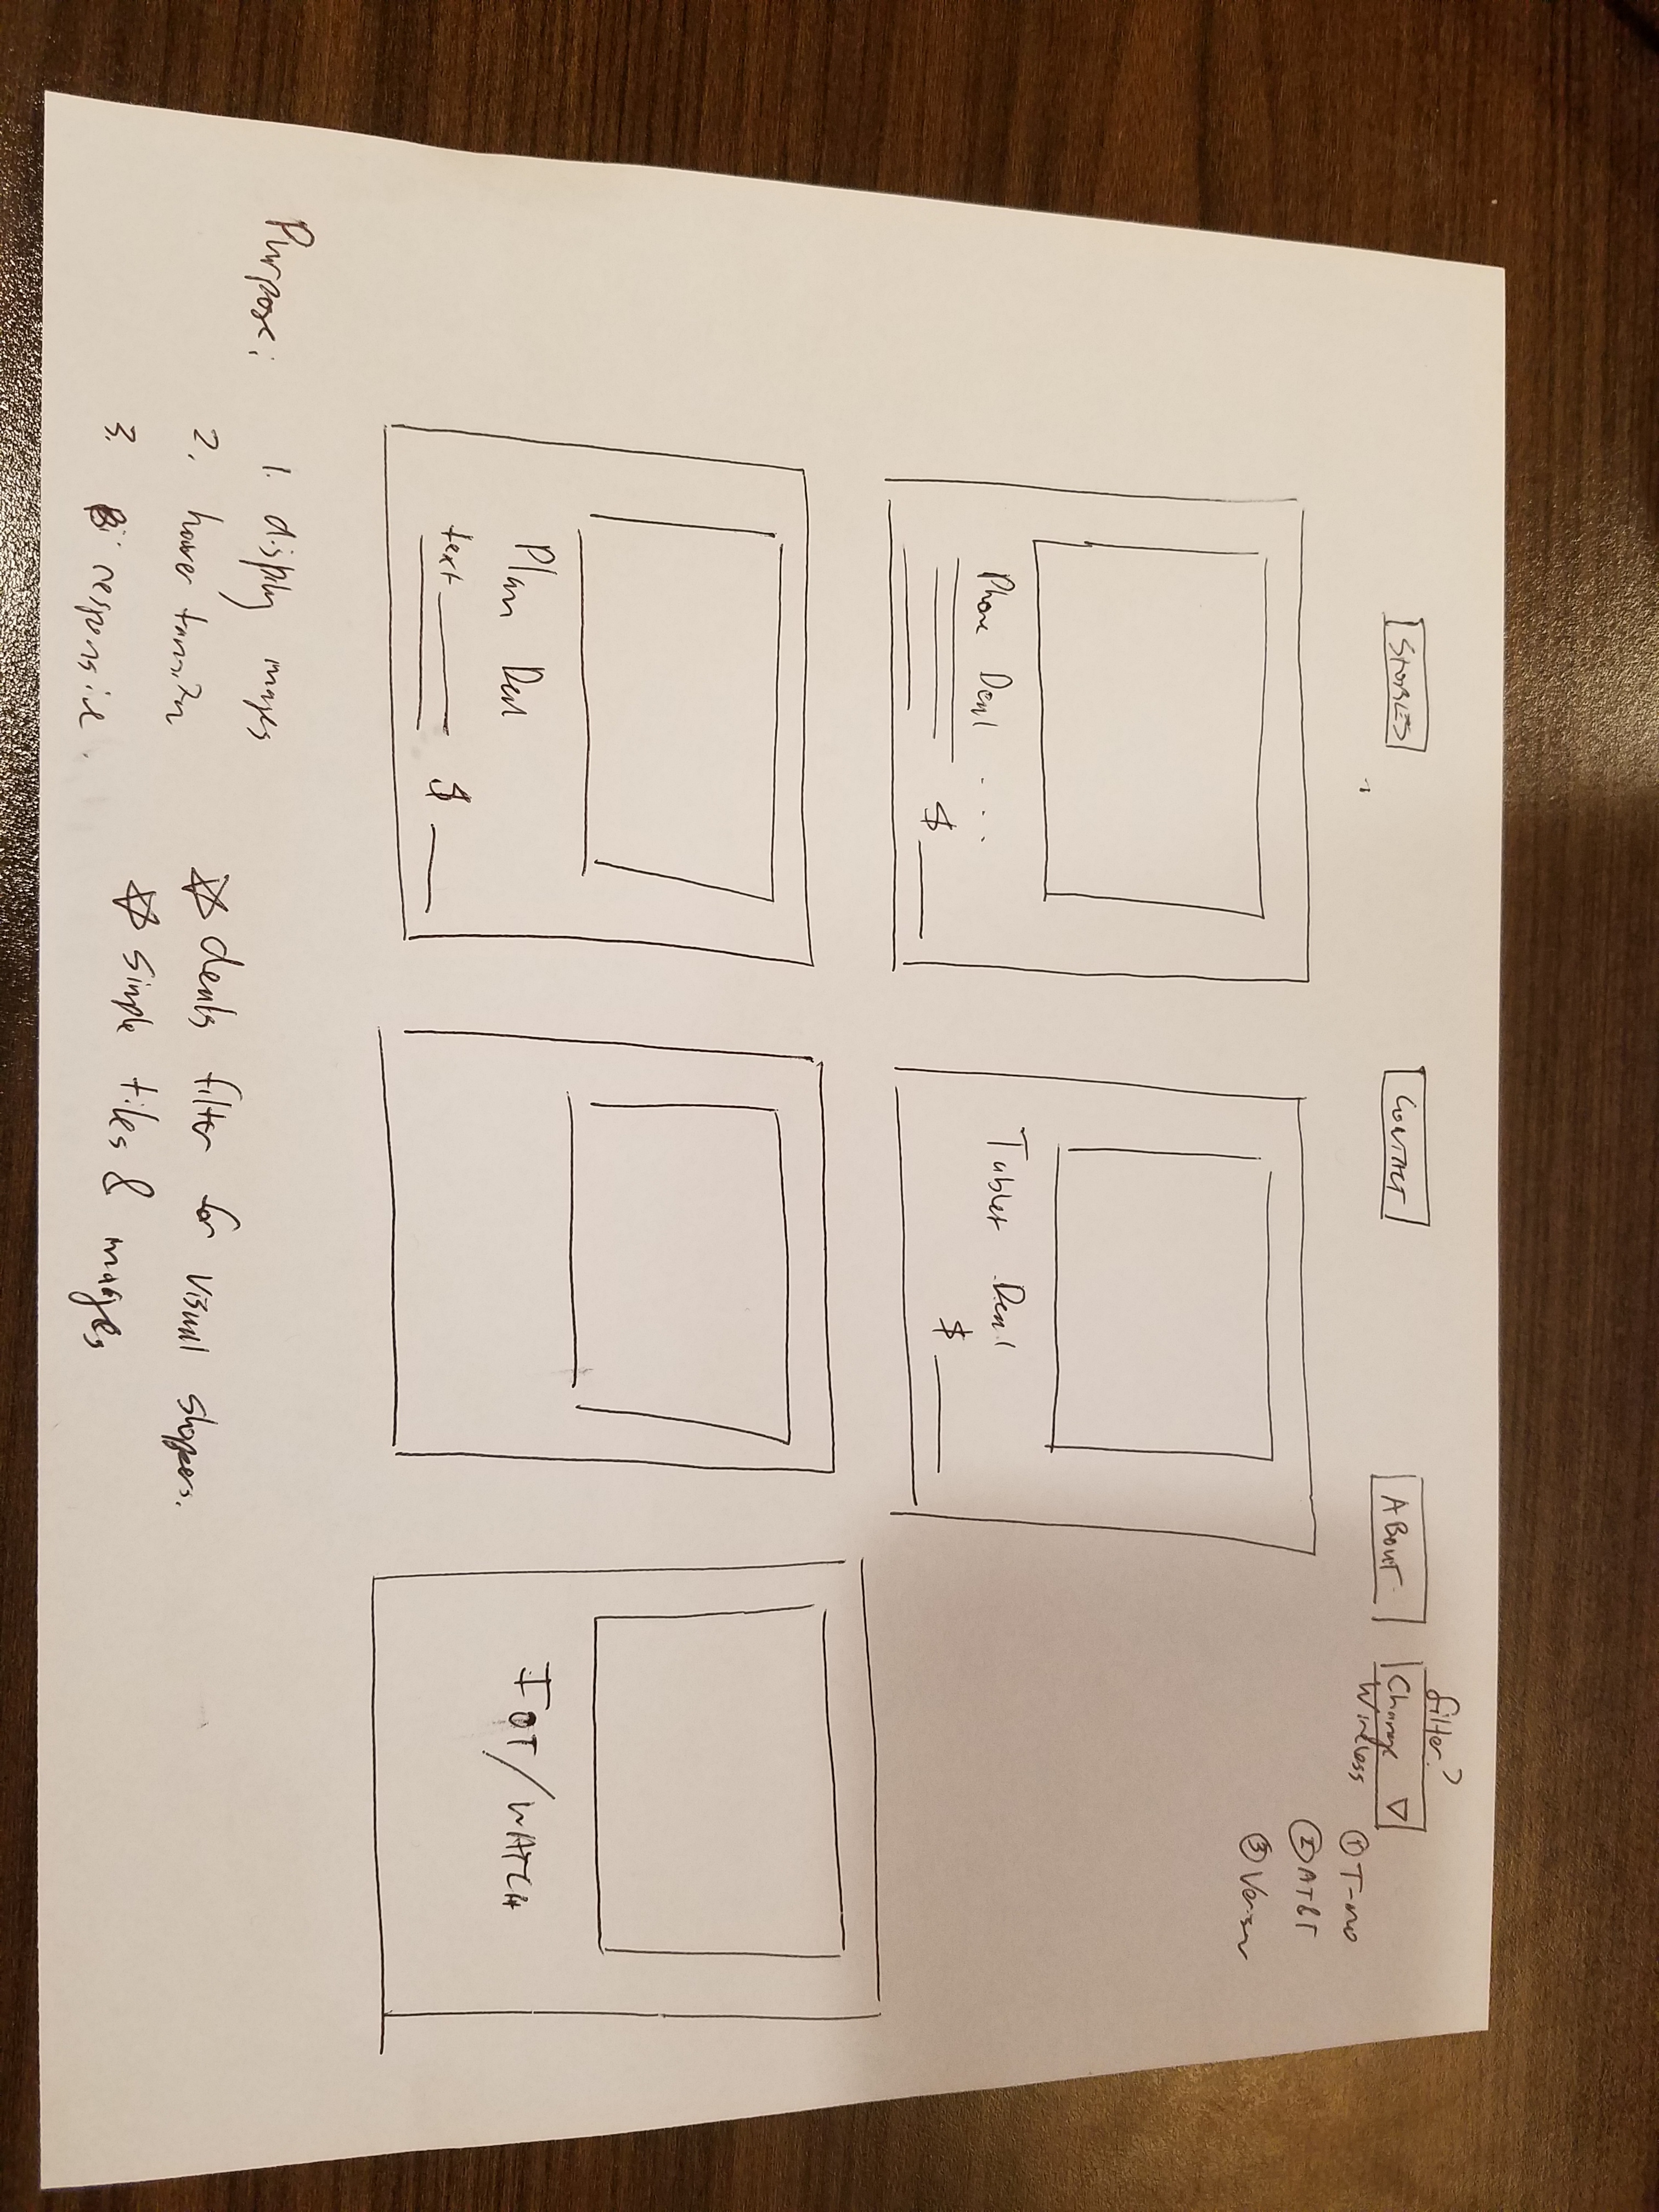 STORES
CONTACT
ABOUT
filter?
Change ▽
Wireless
① T-mo
② AT&T
③ Verizon
Phone Deal ...
$
Tablet Deal
$
Plan Deal
text $
IOT/WATCH
Purpose:
1. display images
2. hover transition
3. responsive.
☆ deals filter for visual shoppers.
☆ Simple tiles & images